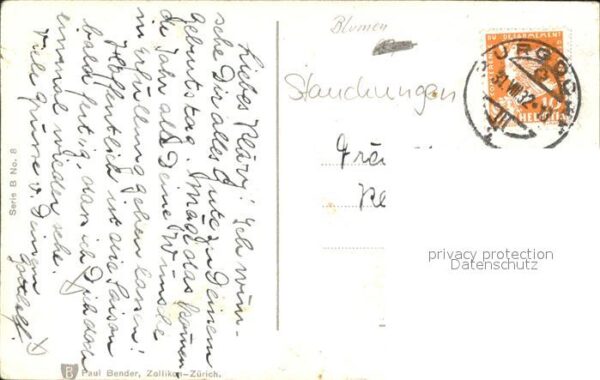 Liebes Kläry! Ich wün-
sche Dir alles Gute zu Deinem
Geburtstag. Mage das kommen
de Jahr all Deine Wünsche
in Erfüllung gehen lassen!
Hoffentlich ist die Saison
bald fertig, dan ich Dich doch
einmal wieder sehe.
Viele Grüsse v. Deinem
Serie B No. 8
Paul Bender, Zollikon-Zürich.
Blumen
Staudungen
DU DÉSARMEMENT
10
HELVETIA
31.VIII.32
III
privacy protection
Datenschutz